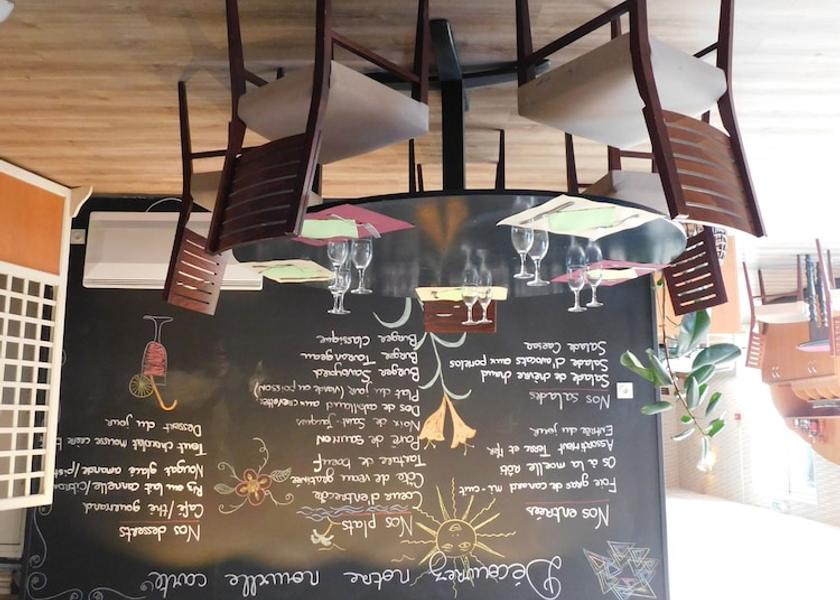 Découvrez notre nouvelle carte
Nos entrées
Foie gras de canard mi-cuit
Os à la moelle rôti
Assortiment Terre et Mer
Entrée du jour
Nos salades
Salade de chèvre chaud
Salade d'avocats aux portelos
Salade Caesar
Nos plats
Coeur d'entrecôte
Côte de veau gratinée
Tartare de boeuf
Pavé de saumon
Noix de Saint Jacques
Dos de cabillaud aux crevettes
Plat du jour (viande ou poisson)
Burger Savoyard
Burger Tourangeau
Burger Classique
Nos desserts
Café/thé gourmand
Riz au lait cannelle/citron
Nougat glacé amande/pist
Tout chocolat mousse
Dessert du jour